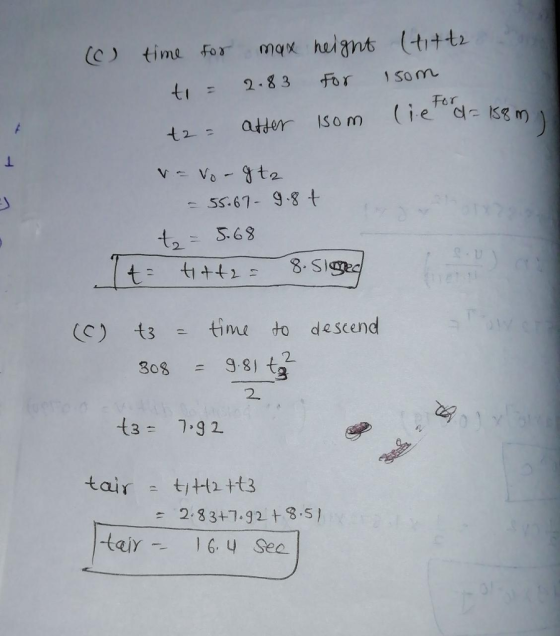 (C) time for max height (t1+t2
t1 = 2.83 for 150m
t2 = after 150m (i.e For d= 158m)
v = v0 - gt2
= 55.67 - 9.8 t
t2 = 5.68
t = t1+t2 = 8.51 sec
(C) t3 = time to descend
308 = 9.81 t3²
2
t3 = 7.92
tair = t1+t2+t3
= 2.83+7.92+8.51
tair = 16.4 sec